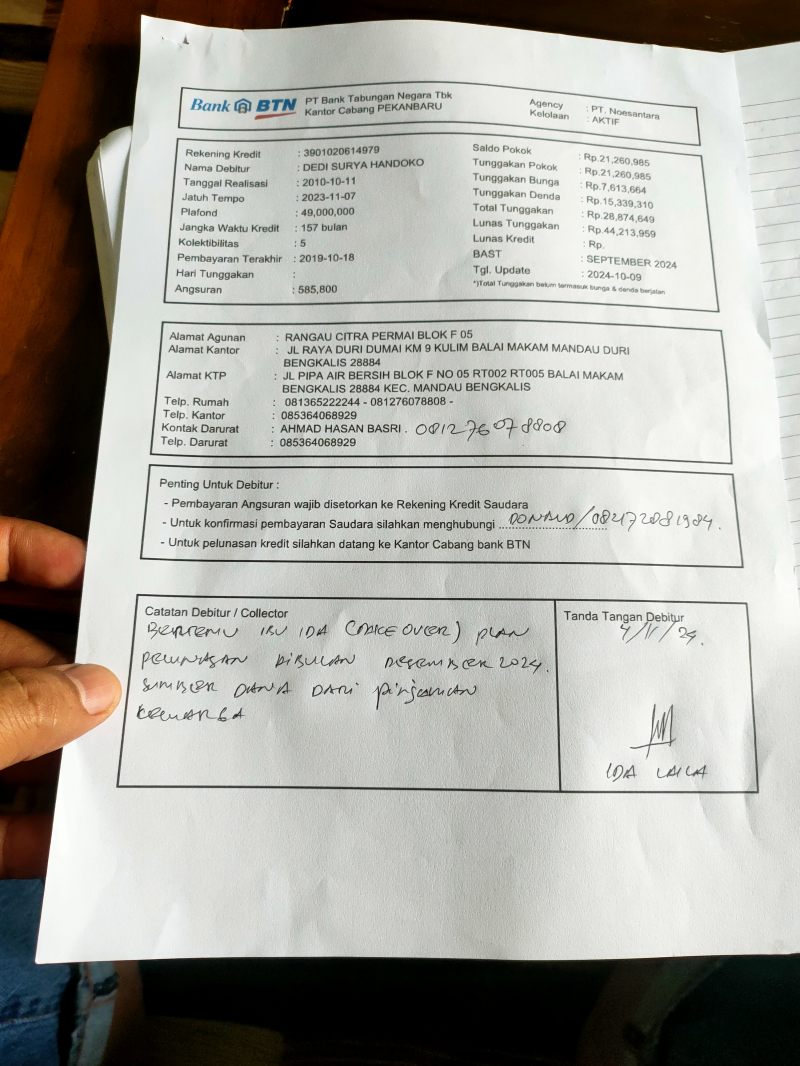 Bank BTN
PT Bank Tabungan Negara Tbk
Kantor Cabang PEKANBARU
Agency : PT. Noesantara
Kelolaan : AKTIF
Rekening Kredit : 3901020614979
Nama Debitur : DEDI SURYA HANDOKO
Tanggal Realisasi : 2010-10-11
Jatuh Tempo : 2023-11-07
Plafond : 49,000,000
Jangka Waktu Kredit : 157 bulan
Kolektibilitas : 5
Pembayaran Terakhir : 2019-10-18
Hari Tunggakan :
Angsuran : 585,800
Saldo Pokok : Rp.21,260,985
Tunggakan Pokok : Rp.21,260,985
Tunggakan Bunga : Rp.7,613,664
Tunggakan Denda : Rp.15,339,310
Total Tunggakan : Rp.28,874,649
Lunas Tunggakan : Rp.44,213,959
Lunas Kredit : Rp.
BAST : SEPTEMBER 2024
Tgl. Update : 2024-10-09
*)Total Tunggakan belum termasuk bunga & denda berjalan
Alamat Agunan : RANGAU CITRA PERMAI BLOK F 05
Alamat Kantor : JL RAYA DURI DUMAI KM 9 KULIM BALAI MAKAM MANDAU DURI
BENGKALIS 28884
Alamat KTP : JL PIPA AIR BERSIH BLOK F NO 05 RT002 RT005 BALAI MAKAM
BENGKALIS 28884 KEC. MANDAU BENGKALIS
Telp. Rumah : 081365222244 - 081276078808 -
Telp. Kantor : 085364068929
Kontak Darurat : AHMAD HASAN BASRI . 081276078808
Telp. Darurat : 085364068929
Penting Untuk Debitur :
- Pembayaran Angsuran wajib disetorkan ke Rekening Kredit Saudara
- Untuk konfirmasi pembayaran Saudara silahkan menghubungi DONALD/082172081984.
- Untuk pelunasan kredit silahkan datang ke Kantor Cabang bank BTN
Catatan Debitur / Collector
BERTEMU IBU IDA (TAKE OVER) PLAN
PELUNASAN DIBULAN DESEMBER 2024.
SUMBER DANA DARI PINJAMAN
KELUARGA
Tanda Tangan Debitur
4/11/24.
IDA LAILA